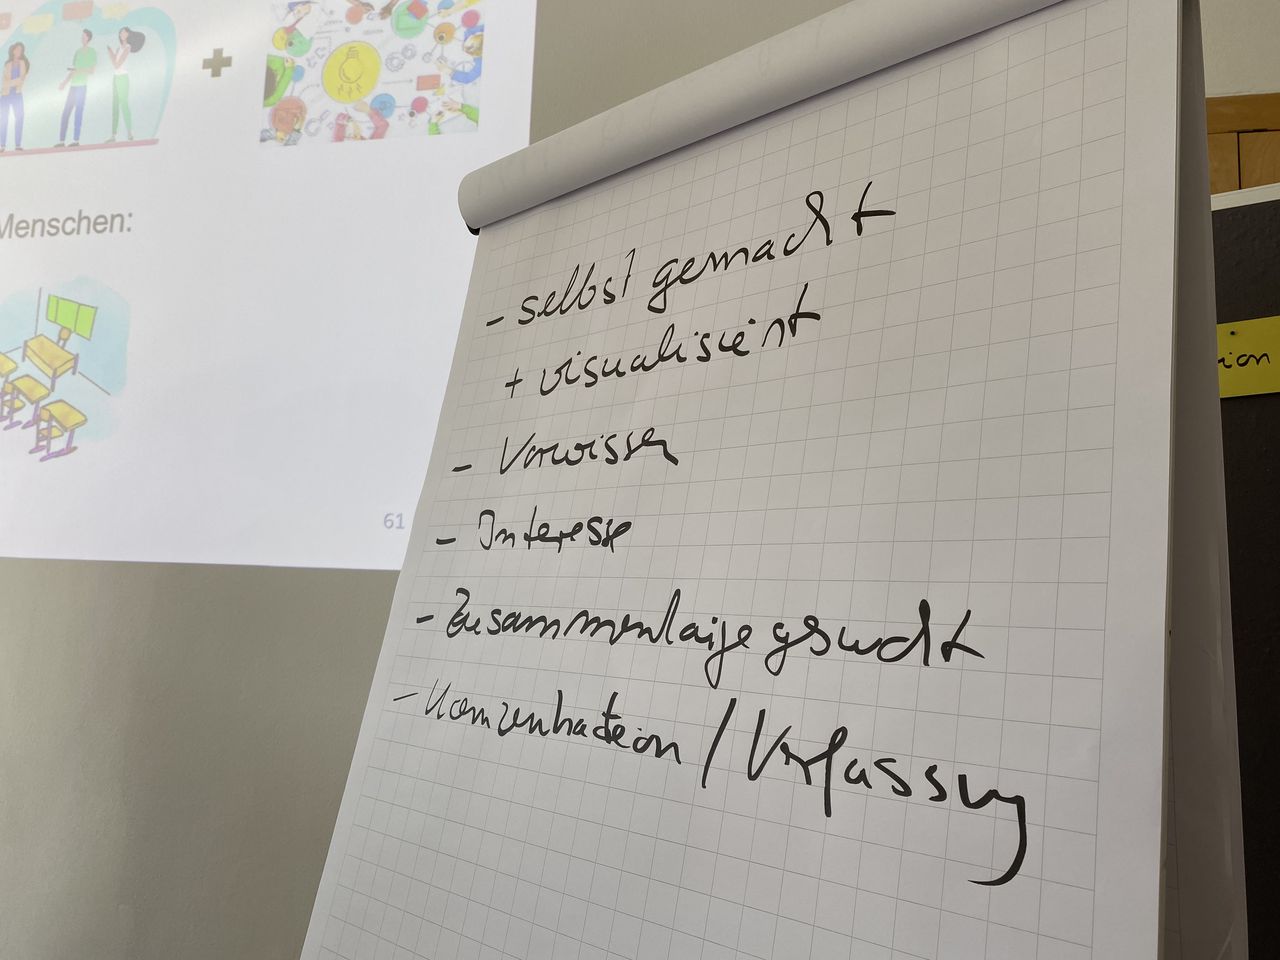 Menschen:
61
- selbst gemacht
+ visualisiert
- Vorwissen
- Interesse
- Zusammenhänge gesucht
- Konzentration / Verfassung
ion